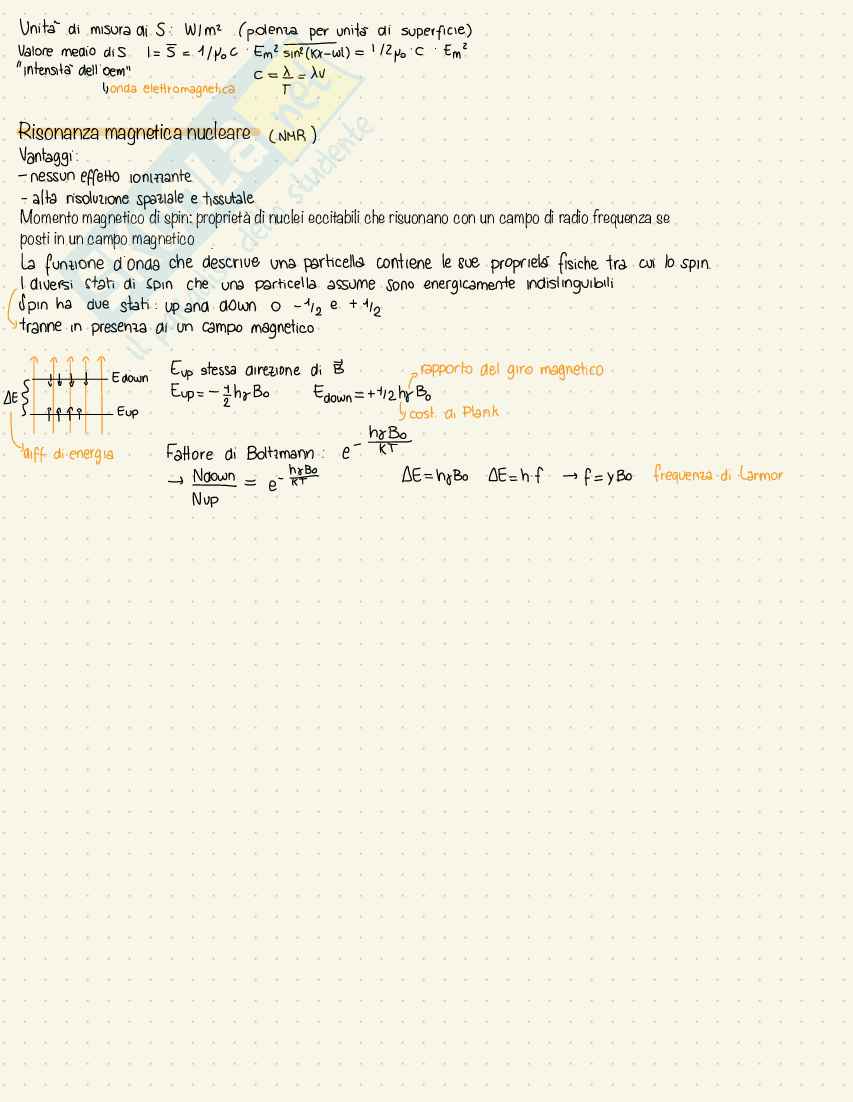 Unità di misura di S: W/m² (potenza per unità di superficie)
Valore medio di S I = S̅ = 1/μ₀c · Em² sin²(kx-ωt) = 1/2μ₀·c · Em²
"intensità dell'oem" c = λ/T = λν
onda elettromagnetica
Risonanza magnetica nucleare (NMR)
Vantaggi:
- nessun effetto ionizzante
- alta risoluzione spaziale e tissutale
Momento magnetico di spin: proprietà di nuclei eccitabili che risuonano con un campo di radio frequenza se
posti in un campo magnetico
La funzione d'onda che descrive una particella contiene le sue proprietà fisiche tra cui lo spin.
I diversi stati di spin che una particella assume sono energicamente indistinguibili
Spin ha due stati: up and down o -1/2 e +1/2
tranne in presenza di un campo magnetico
ΔE Edown Eup
diff di energia
Eup stessa direzione di B⃗
rapporto del giro magnetico
Eup = -1/2 hγB₀ Edown = +1/2 hγB₀
cost. di Plank
Fattore di Boltzmann: e^-hγB₀/KT
→ Ndown/Nup = e^-hγB₀/KT ΔE = hγB₀ ΔE = h·f → f = γB₀ frequenza di Larmor
il paradiso dello studente